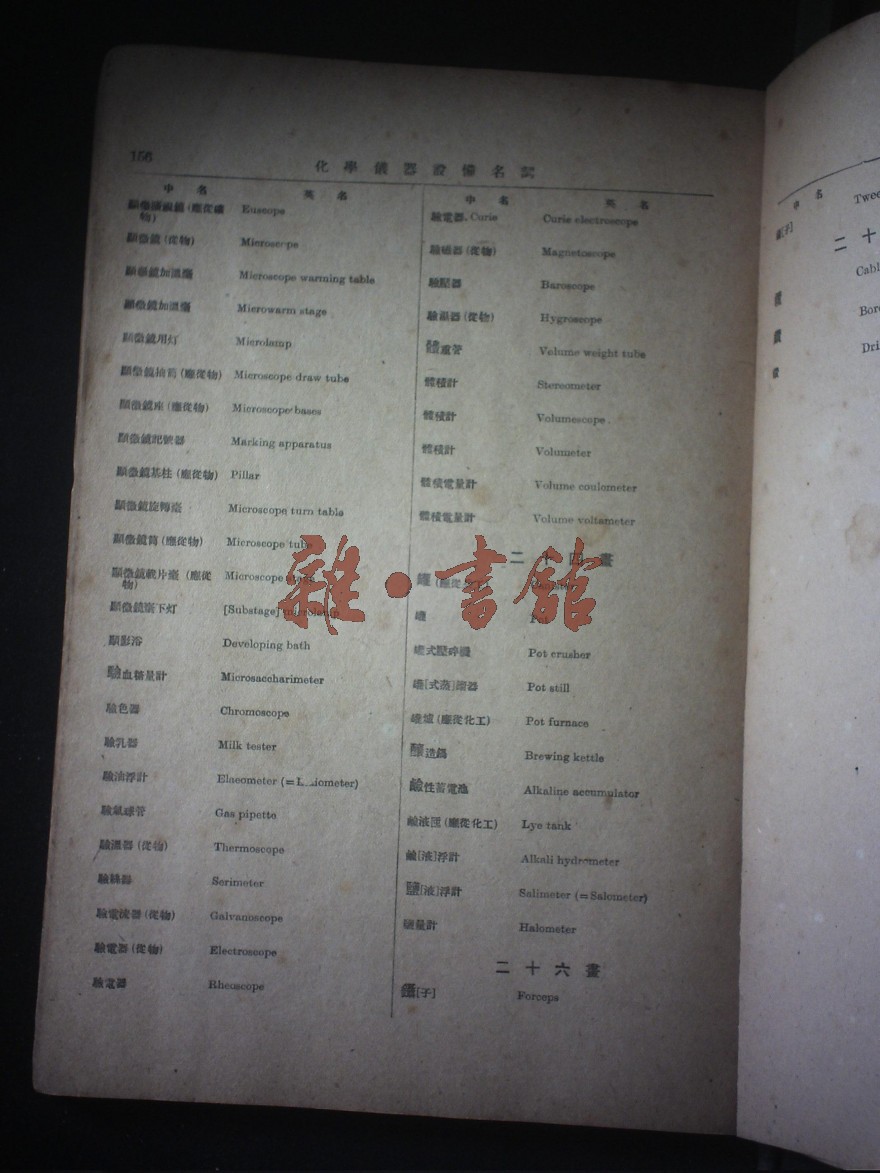 156
化學儀器設備名詞
中 名 英 名
顯微擴視鏡(應從礦物) Euscope
顯微鏡(從物) Microscope
顯微鏡加溫檯 Microscope warming table
顯微鏡加溫檯 Microwarm stage
顯微鏡用灯 Microlamp
顯微鏡抽筒(應從物) Microscope draw tube
顯微鏡座(應從物) Microscope bases
顯微鏡記號器 Marking apparatus
顯微鏡基柱(應從物) Pillar
顯微鏡旋轉臺 Microscope turn table
顯微鏡筒(應從物) Microscope tube
顯微鏡載片臺(應從物) Microscope stage
顯微鏡臺下灯 [Substage] microlamp
顯影浴 Developing bath
驗血糖量計 Microsaccharimeter
驗色器 Chromoscope
驗乳器 Milk tester
驗油浮計 Elaeometer (=
驗氣球管 Gas pipette
驗溫器(從物) Thermoscope
驗絲器 Serimeter
驗電流器(從物) Galvanoscope
驗電器(從物) Electroscope
驗電器 Rheoscope
中 名 英 名
驗電器, Curie Curie electroscope
驗磁器(從物) Magnetoscope
驗壓器 Baroscope
驗濕器(從物) Hygroscope
體重管 Volume weight tube
體積計 Stereometer
體積計 Volumescope
體積計 Volumeter
體積電量計 Volume coulometer
體積電量計 Volume voltameter
二十四畫
罐(應從化工)
罐 Pot
罐式壓碎機 Pot crusher
罐[式蒸]溜器 Pot still
罐爐(應從化工) Pot furnace
釀造鍋 Brewing kettle
鹼性蓄電池 Alkaline accumulator
鹼液匣(應從化工) Lye tank
鹼[液]浮計 Alkali hydrometer
鹽[液]浮計 Salimeter (=Salometer)
鹽量計 Halometer
二十六畫
鑷[子] Forceps
雜·書館
中 名
[子] Twee
二十
Cabl
Bor
Dri